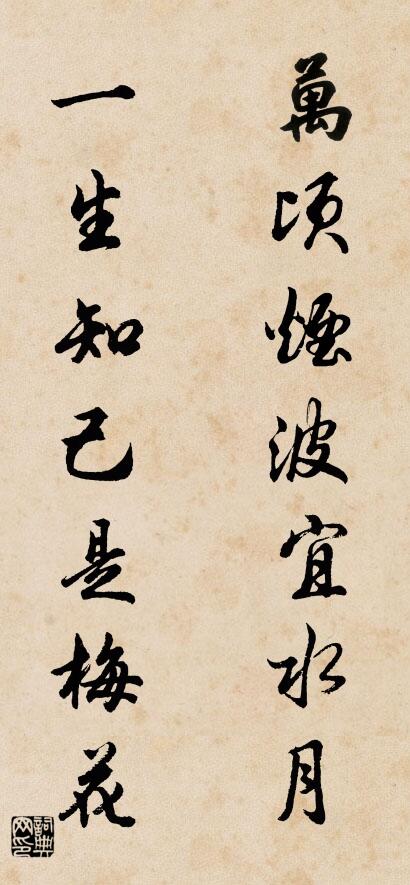 萬頃煙波宜水月
一生知己是梅花
詞典网印